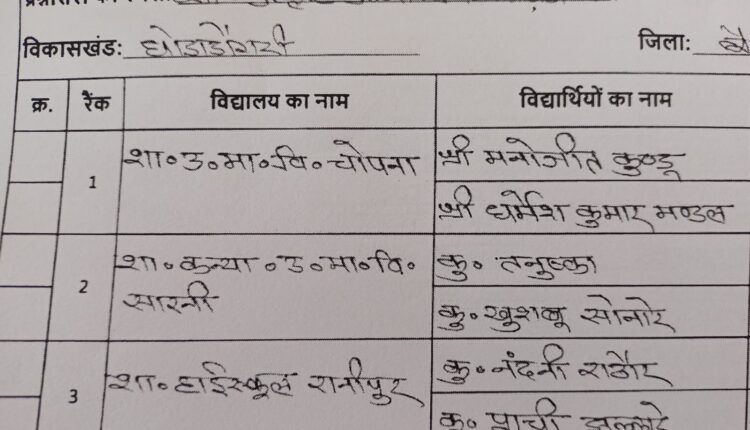 विकासखंड: घोडाडोंगरी जिला: बै
क्र. रैंक विद्यालय का नाम विद्यार्थियों का नाम
1 शा॰उ॰मा॰वि॰चोपना श्री मनोजीत कुण्डू
श्री धर्मेश कुमार मण्डल
2 शा॰कन्या॰उ॰मा॰वि॰ कु॰ तनुष्का
सारनी कु॰ खुशबू सोनारे
3 शा॰हाईस्कूल रानीपुर कु॰ नंदनी राठौर
कु॰ प्राची